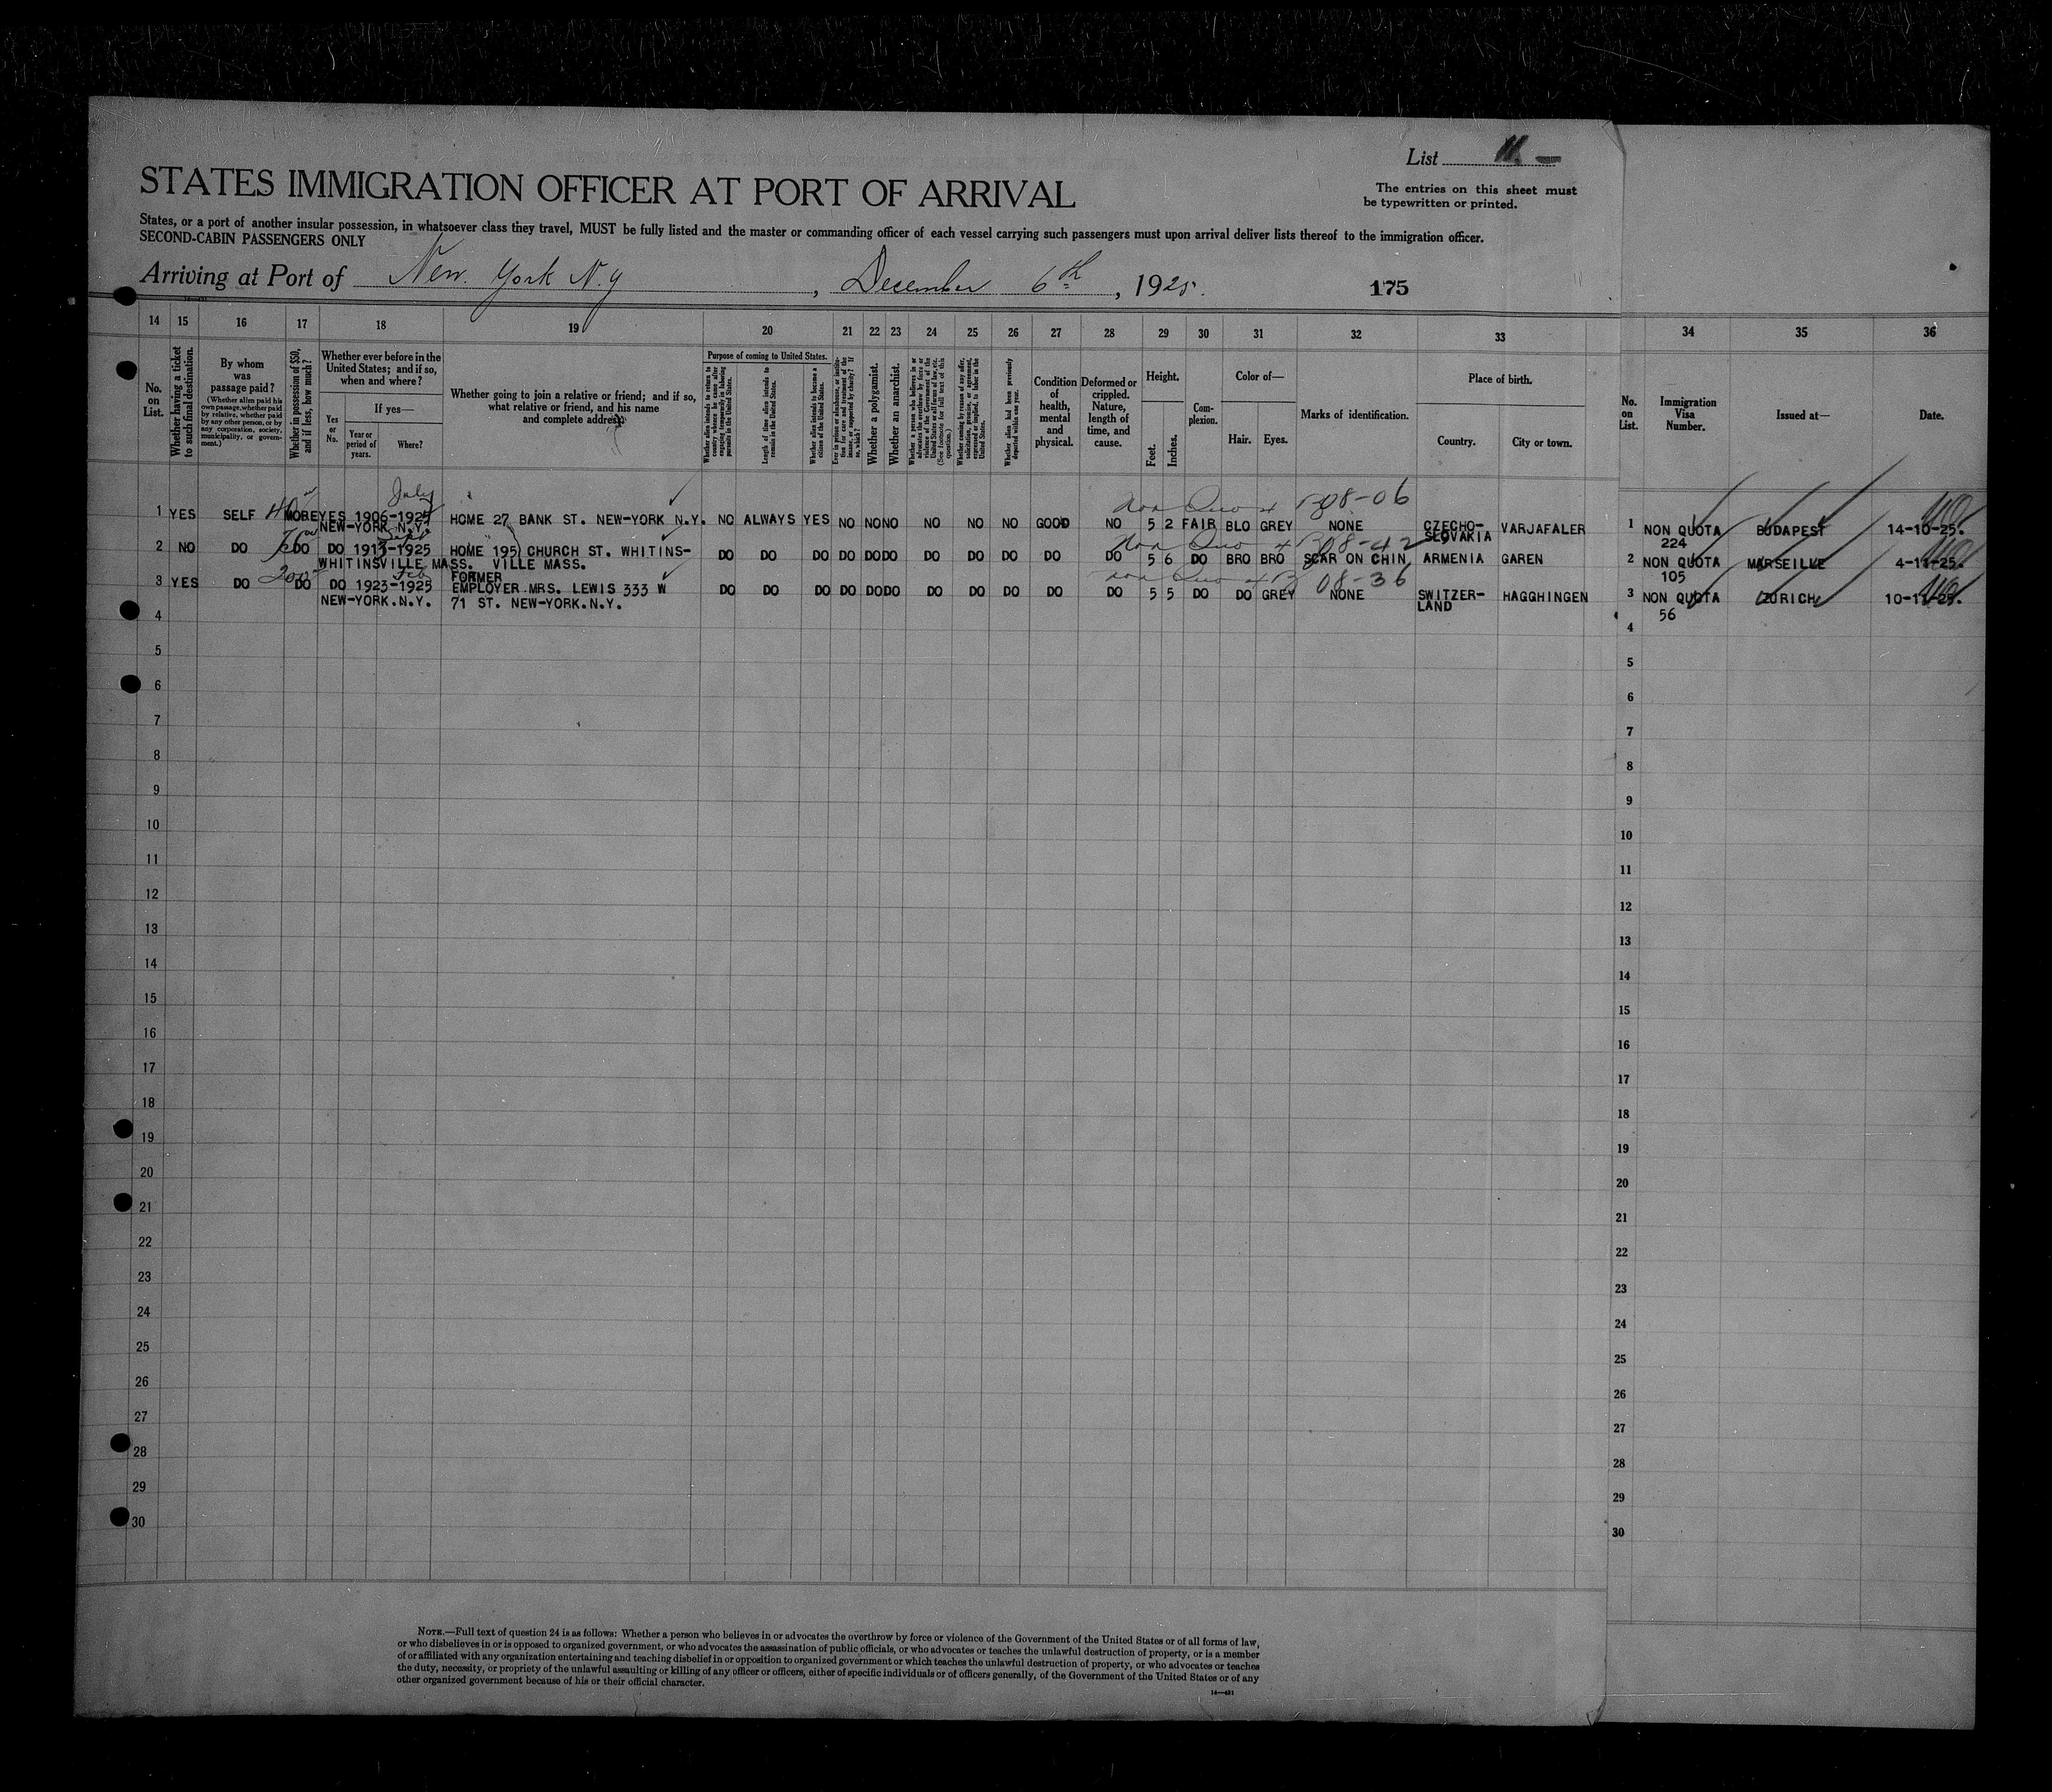 List 11. —
The entries on this sheet must
be typewritten or printed.
STATES IMMIGRATION OFFICER AT PORT OF ARRIVAL
States, or a port of another insular possession, in whatsoever class they travel, MUST be fully listed and the master or commanding officer of each vessel carrying such passengers must upon arrival deliver lists thereof to the immigration officer.
SECOND-CABIN PASSENGERS ONLY
Arriving at Port of New York N.Y , December 6th , 1925. 175
14 15 16 17 18 19 20 21 22 23 24 25 26 27 28 29 30 31 32 33 34 35 36
No. on List.
Whether having a ticket to such final destination.
By whom was passage paid?
(Whether alien paid his own passage, whether paid by relative, whether paid by any other person, or by any corporation, society, municipality, or government.)
Whether in possession of $50, and if less, how much?
Whether ever before in the United States; and if so, when and where?
Yes or No.
If yes—
Year or period of years.
Where?
Whether going to join a relative or friend; and if so, what relative or friend, and his name and complete address.
Purpose of coming to United States.
Whether alien intends to return to country whence he came after engaging temporarily in laboring pursuits in the United States.
Length of time alien intends to remain in the United States.
Whether alien intends to become a citizen of the United States.
Ever in prison or almshouse, or institution for care and treatment of the insane, or supported by charity? If so, which?
Whether a polygamist.
Whether an anarchist.
Whether a person who believes in or advocates the overthrow by force or violence of the Government of the United States or all forms of law, etc. (See footnote for full text of this question.)
Whether coming by reason of any offer, solicitation, promise, or agreement, expressed or implied, to labor in the United States.
Whether alien had been previously deported within one year.
Condition of health, mental and physical.
Deformed or crippled. Nature, length of time, and cause.
Height.
Feet.
Inches.
Complexion.
Color of—
Hair.
Eyes.
Marks of identification.
Place of birth.
Country.
City or town.
No. on List.
Immigration Visa Number.
Issued at—
Date.
July
Non Quo 08-06
1 YES SELF MORE YES 1906-1925 HOME 27 BANK ST. NEW-YORK N.Y. NO ALWAYS YES NO NO NO NO NO NO GOOD NO 5 2 FAIR BLO GREY NONE CZECHO- VARJAFALER 1 NON QUOTA BUDAPEST 14-10-25.
NEW-YORK N.Y. SLOVAKIA 224
Sept
Non Quo 08-42
2 NO DO DO DO 1913-1925 HOME 195 CHURCH ST. WHITINS- DO DO DO DO DO DO DO DO DO DO DO 5 6 DO BRO BRO SCAR ON CHIN ARMENIA GAREN 2 NON QUOTA MARSEILLE 4-11-25.
WHITINSVILLE MASS. VILLE MASS. 105
Feb FORMER
Non Quo 08-36
3 YES DO DO DO 1923-1925 EMPLOYER MRS. LEWIS 333 W DO DO DO DO DO DO DO DO DO DO DO 5 5 DO DO GREY NONE SWITZER- HAGGHINGEN 3 NON QUOTA ZURICH 10-11-25.
NEW-YORK.N.Y. 71 ST. NEW-YORK.N.Y. LAND 56
4 4
5 5
6 6
7 7
8 8
9 9
10 10
11 11
12 12
13 13
14 14
15 15
16 16
17 17
18 18
19 19
20 20
21 21
22 22
23 23
24 24
25 25
26 26
27 27
28 28
29 29
30 30
NOTE.—Full text of question 24 is as follows: Whether a person who believes in or advocates the overthrow by force or violence of the Government of the United States or of all forms of law,
or who disbelieves in or is opposed to organized government, or who advocates the assassination of public officials, or who advocates or teaches the unlawful destruction of property, or is a member
of or affiliated with any organization entertaining and teaching disbelief in or opposition to organized government or which teaches the unlawful destruction of property, or who advocates or teaches
the duty, necessity, or propriety of the unlawful assaulting or killing of any officer or officers, either of specific individuals or of officers generally, of the Government of the United States or of any
other organized government because of his or their official character.
14—421